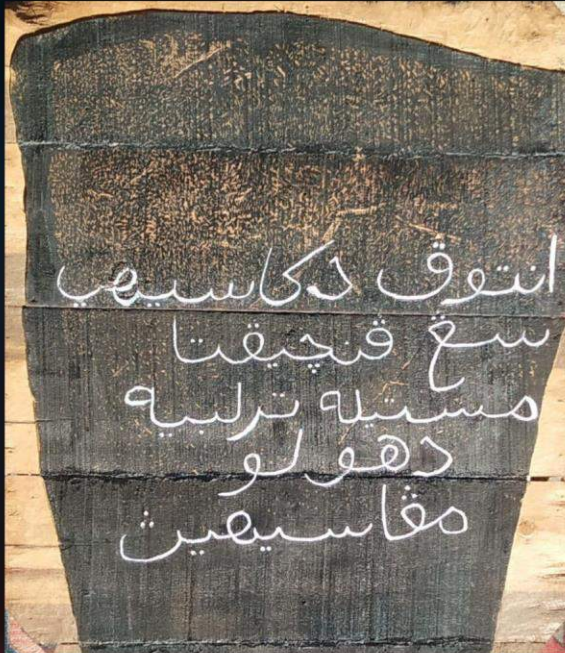 انتوق دکاسيهي
سڠ ڤنچيڤتا
مستيله ترلبيه
دهولو
مڠاسيهيڽ